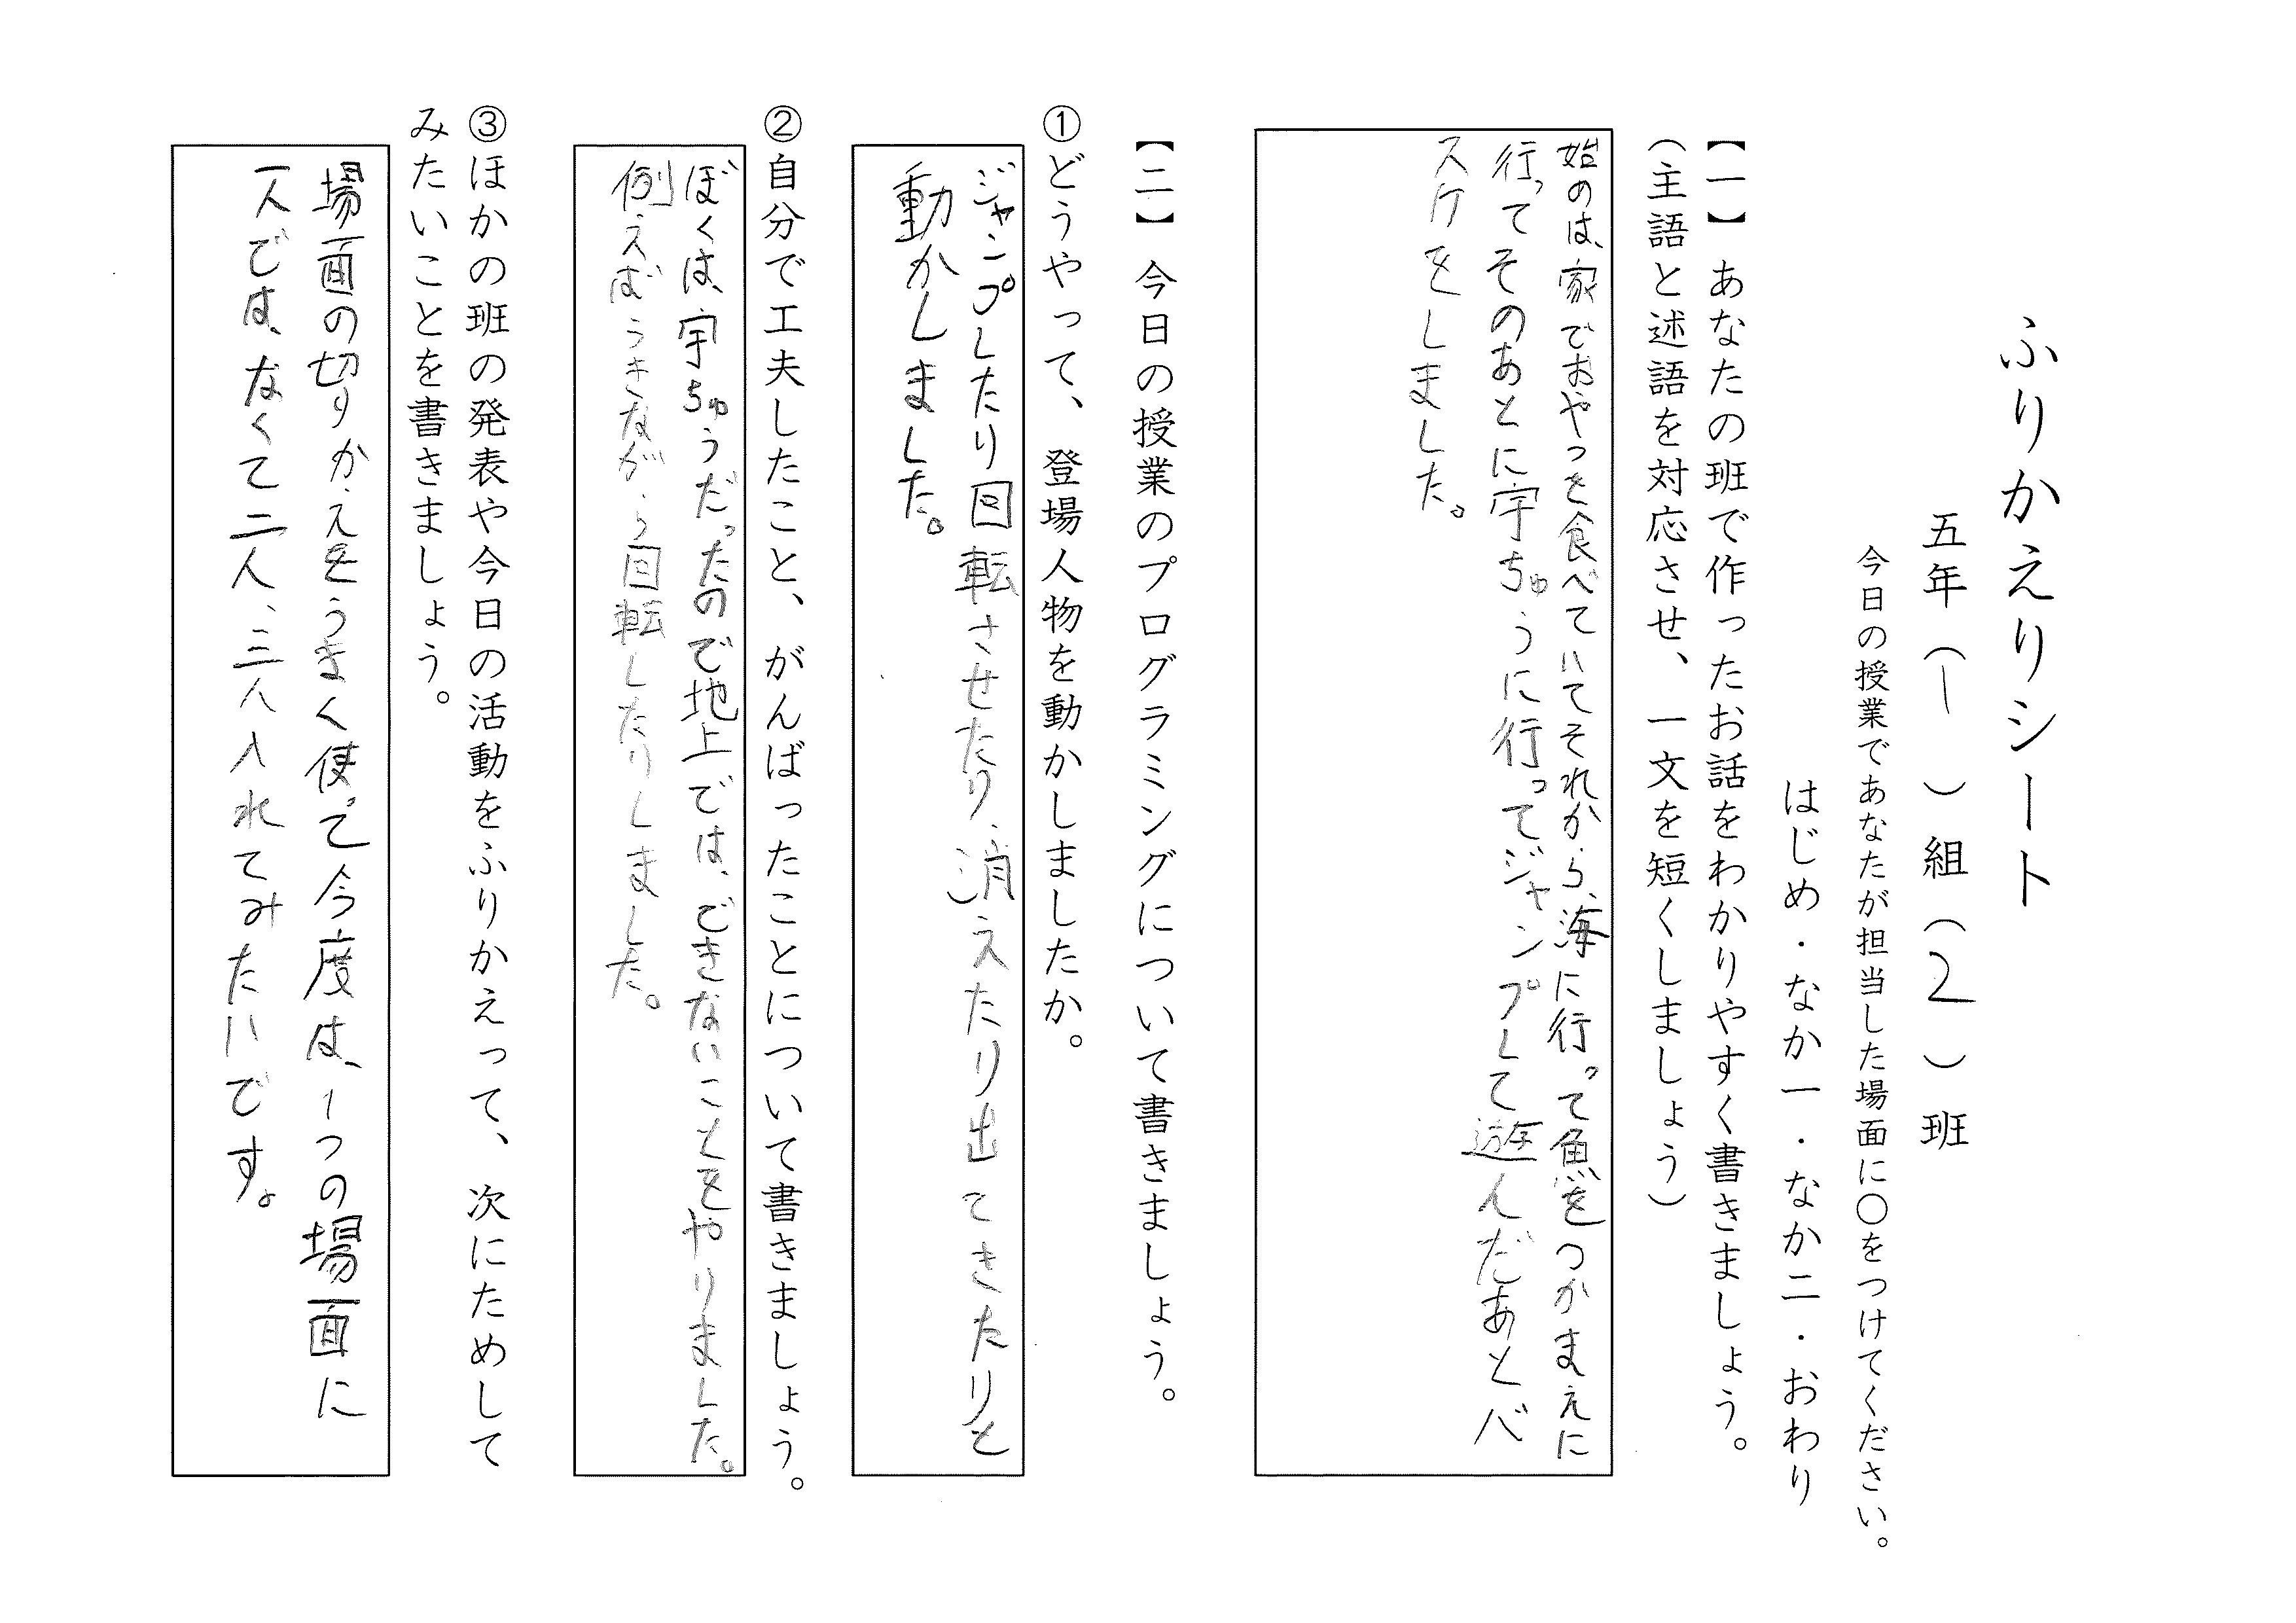 ふりかえりシート
五年（1）組（2）班
今日の授業であなたが担当した場面に〇をつけてください。
はじめ・なか一・なか二・おわり
【一】あなたの班で作ったお話をわかりやすく書きましょう。
（主語と述語を対応させ、一文を短くしましょう）
始めは、家でおやつを食べていてそれから、海に行って魚をつかまえに
行ってそのあとに宇ちゅうに行ってジャンプして遊んだあとバ
スケをしました。
【二】今日の授業のプログラミングについて書きましょう。
①どうやって、登場人物を動かしましたか。
ジャンプしたり回転させたり、消えたり出てきたりと
動かしました。
②自分で工夫したこと、がんばったことについて書きましょう。
ぼくは、宇ちゅうだったので地上では、できないことをやりました。
例えばうきながら回転したりしました。
③ほかの班の発表や今日の活動をふりかえって、次にためして
みたいことを書きましょう。
場面の切りかえをうまく使って今度は、1つの場面に
一人では、なくて二人、三人入れてみたいです。